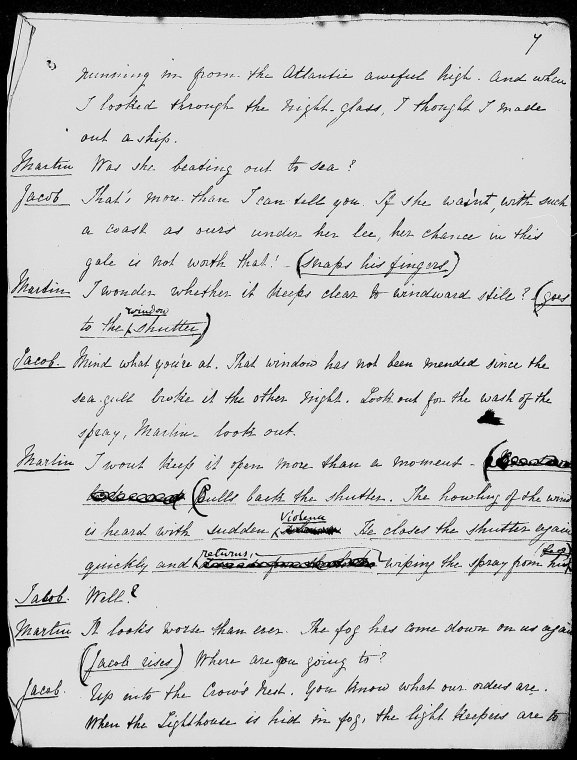 7
running in from the Atlantic aweful high. And when
I looked through the night-glass, I thought I made
out a ship.
Martin Was she beating out to sea?
Jacob That's more than I can tell you. If she wasn't, with such
a coast as ours under her lee, her chance in this
gale is not worth that! - (snaps his fingers)
Martin I wonder whether it keeps clear to windward still? (goes
window
to the shutter)
Jacob. Mind what you're at. That window has not been mended since the
sea-gull broke it the other night. Look out for the wash of the
spray, Martin - look out.
Martin I wont keep it open more than a moment -
(Pulls back the shutter. The howling of the wind
violence
is heard with sudden He closes the shutter again
returns, 
quickly and wiping the spray from his
Jacob. Well?
Martin It looks worse than ever. The fog has come down on us again
(Jacob rises) Where are you going to?
Jacob. Up into the Crow's Nest. You know what our orders are.
When the Lighthouse is hid in fog, the light keepers are to